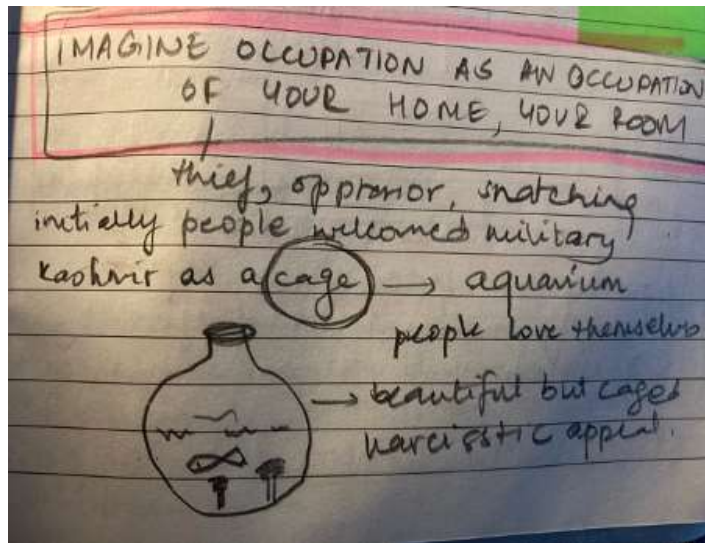 IMAGINE OCCUPATION AS AN OCCUPATION
OF YOUR HOME, YOUR ROOM
thief, oppressor, snatching
initially people welcomed military
Kashmir as a cage → aquarium
people love themselves
→ beautiful but caged
narcisstic appeal.